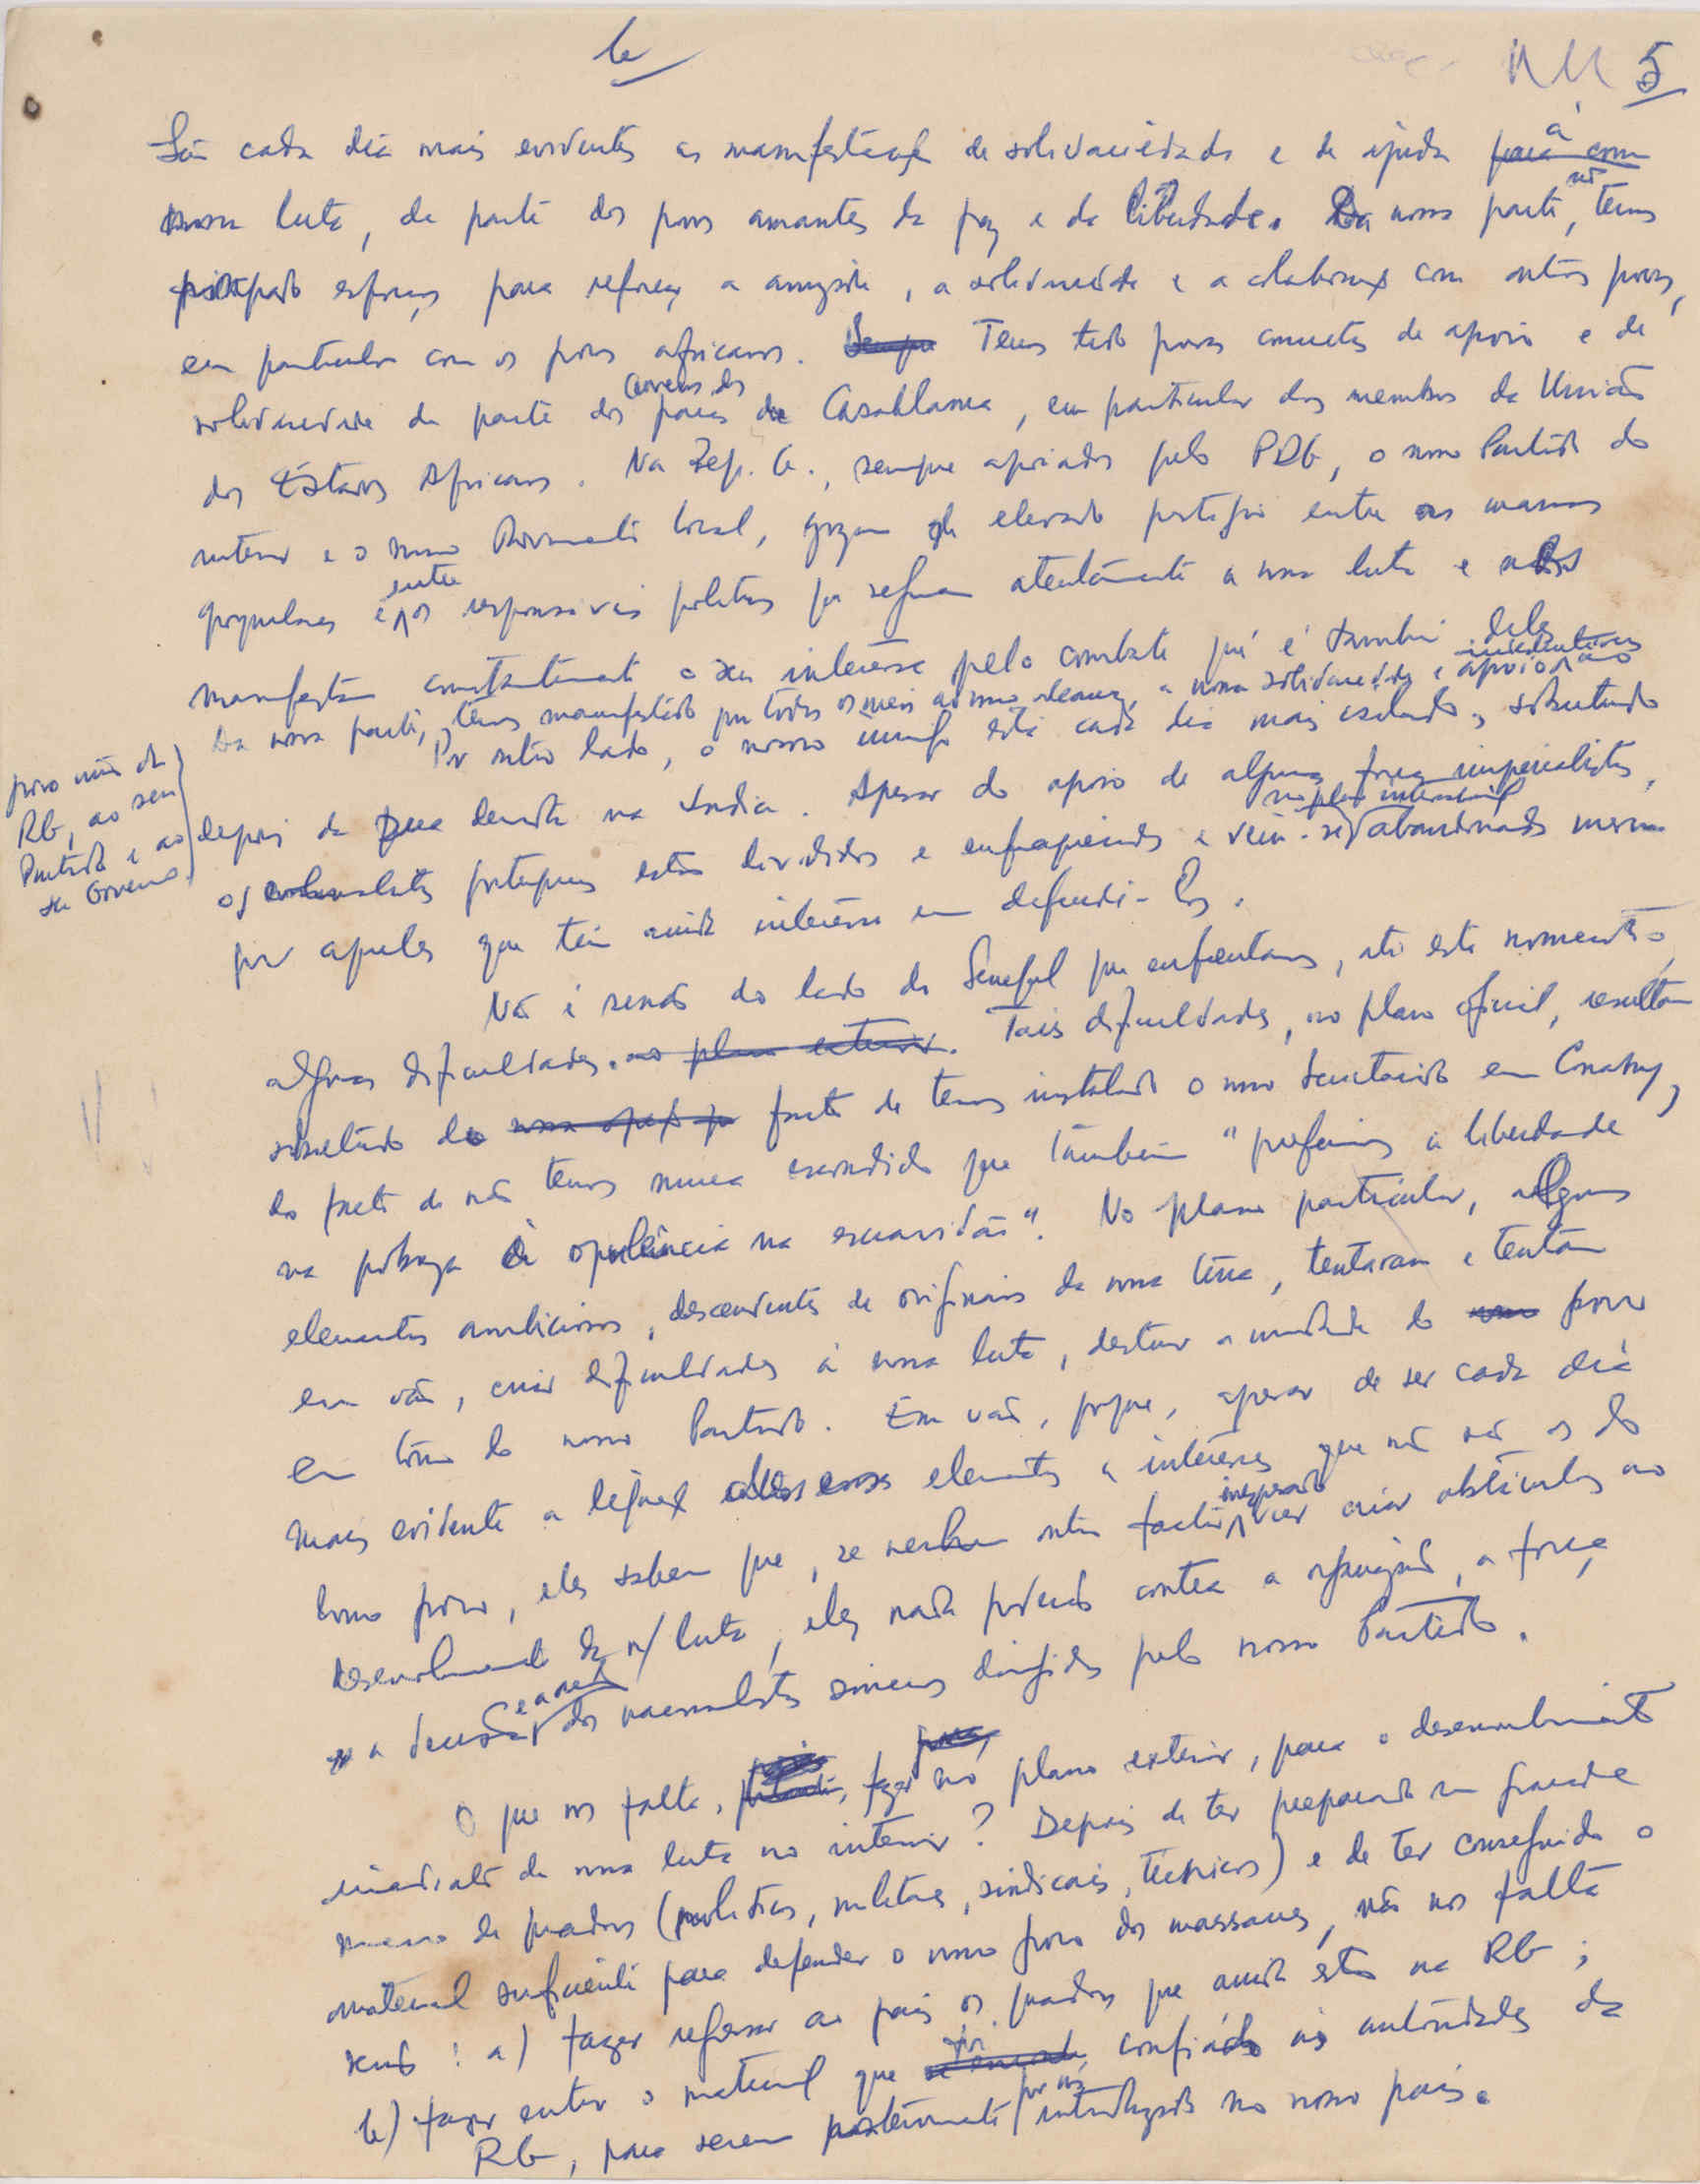 5
São cada dia mais evidentes as manifestações de solidariedade e de ajuda para com à
nossa luta, da parte dos povos amantes da paz e da liberdade. Da nossa parte, nós temos
esforços para reforçar a amizade, a solidariedade e a colaboração com outros povos,
em particular com os povos africanos. Sempre Temos tido provas concretas de apoio e de
solidariedade da parte dos países de Casablanca, em particular dos membros da União
dos Estados Africanos. Na Rep. G., sempre apoiados pelo PDG, o nosso Partido do
interior e o nosso Movimento local, gozam de elevado prestígio entre as massas
populares e entre os responsáveis políticos que seguem atentamente a nossa luta e
manifestam constantemente o seu interesse pelo combate que é também deles.
Da nossa parte, temos manifestado por todos os meios ao nosso alcance, a nossa solidariedade e apoio ao
povo irmão da
RG, ao seu
Partido e ao
seu Governo.
Por outro lado, o nosso inimigo está cada dia mais isolado, sobretudo
depois da sua derrota na India. Apesar do apoio de algumas forças imperialistas,
os colonialistas portugueses estão divididos e enfraquecidos e vêem-se no plano internacional abandonados mesmo
por aqueles que têm ainda interesse em defendê-los.
Não é senão do lado do Senegal que enfrentamos, até este momento,
algumas dificuldades. no plano exterior. Tais dificuldades, no plano oficial, resultam
sobretudo do facto de termos instalado o nosso Secretariado em Conakry,
do facto de não termos nunca escondido que também "preferimos a liberdade
na pobreza à opulência na escravidão". No plano particular, alguns
elementos ambiciosos, descendentes de originários da nossa terra, tentaram e tentam
em vão, criar dificuldades à nossa luta, destruir a unidade do nosso povo
em torno do nosso Partido. Em vão, porque, apesar de ser cada dia
mais evidente a ligação desses elementos a interesses que não são os do
nosso povo, eles sabem que, se nenhum outro factor inesperado vier criar obstáculos ao
desenvolvimento da n/ luta, eles nada poderão contra a organização, a força
e a decisão dos nacionalistas sinceros dirigidos pelo nosso Partido.
O que nos falta, fazer no plano exterior, para o desenvolvimento
imediato da nossa luta no interior? Depois de ter preparado um grande
número de quadros (políticos, militares, sindicais, técnicos) e de ter conseguido o
material suficiente para defender o nosso povo dos massacres, não nos falta
senão: a) fazer regressar ao país os quadros que ainda estão na RG;
b) fazer entrar o material que foi confiado às autoridades da
RG, para serem posteriormente por nós introduzido no nosso país.